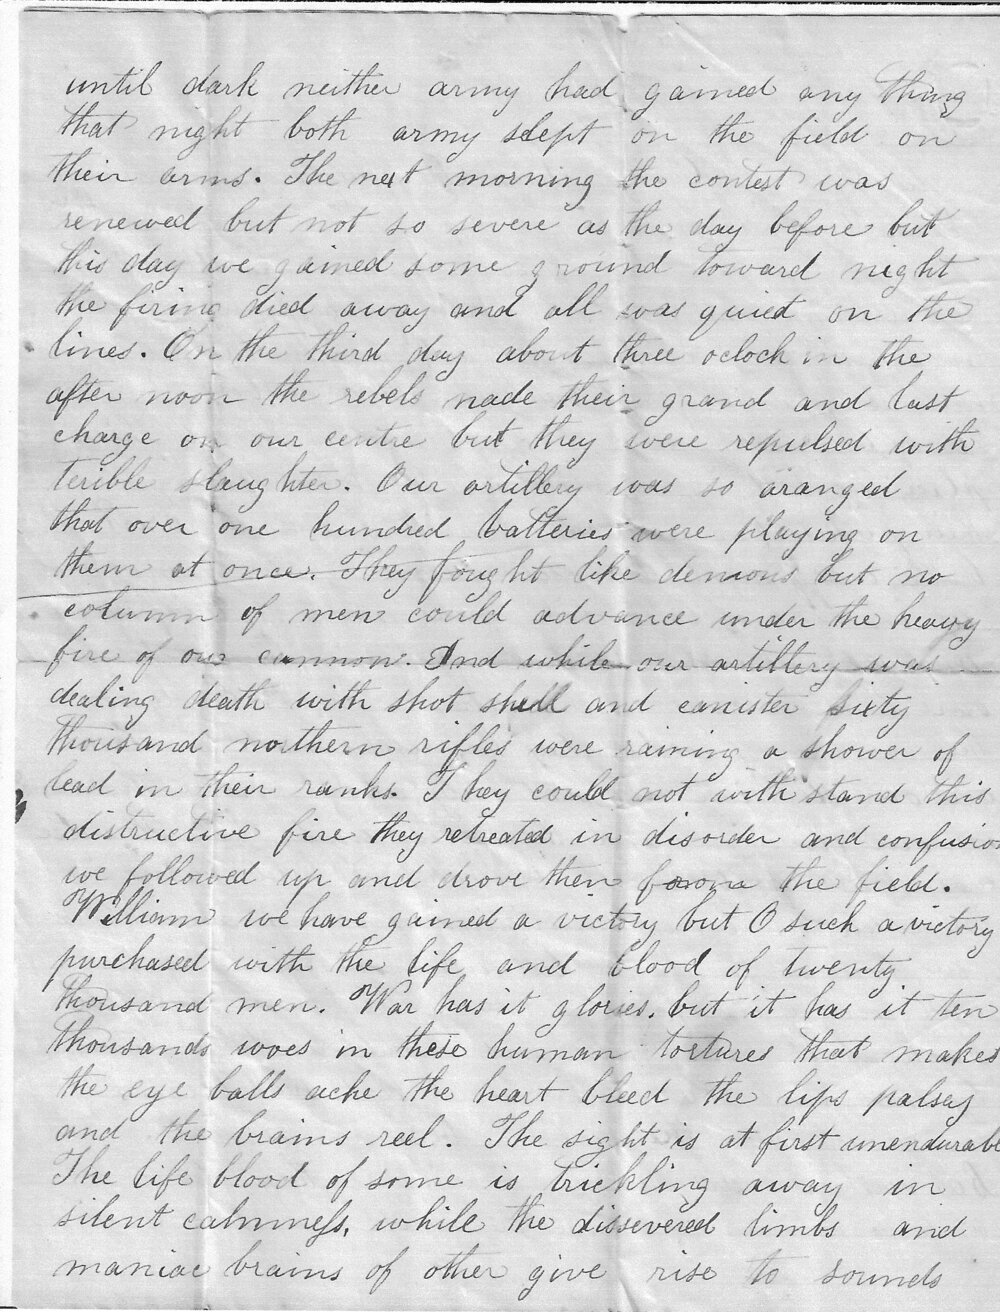 until dark neither army had gained any thing
that night both army slept on the field on
their arms. The next morning the contest was
renewed but not so severe as the day before but
this day we gained some ground toward night
the firing died away and all was quied on the
lines. On the third day about three oclock in the
after noon the rebels made their grand and last
charge on our centre but they were repulsed with
terible slaughter. Our artillery was so aranged
that over one hundred batteries were playing on
them at once. They fought like demons but no
column of men could advance under the heavy
fire of our cannon. And while our artillery was
dealing death with shot shell and canister sixty
thousand northern rifles were raining a shower of
lead in their ranks. They could not with stand this
distructive fire they retreated in disorder and confusion
we followed up and drove then from the field.
William we have gained a victory but O such a victory
purchased with the life and blood of twenty
thousand men. War has it glories, but it has it ten
thousands woes in these human tortures that makes
the eye balls ache the heart bleed the lips palsy
and the brains reel. The sight is at first unendurable
The life blood of some is trickling away in
silent calmness, while the dissevered limbs and
maniac brains of other give rise to sounds